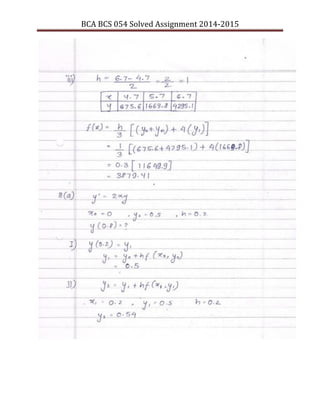 BCA BCS 054 Solved Assignment 2014-2015
iii) h = 6.7 - 4.7 / 2 = 2/2 = 1
x 4.7 5.7 6.7
y 675.6 1669.8 4295.1
f(x) = h/3 [(y₀+yₙ) + 4(y₁)]
= 1/3 [(675.6+4295.1) + 4(1669.8)]
= 0.3 [11649.9]
= 3879.41
8(a) y' = 2xy
x₀ = 0 , y₀ = 0.5 , h = 0.2
y(0.8) = ?
I) y(0.2) = y₁
y₁ = y₀ + hf(x₀, y₀)
= 0.5
II) y₂ = y₁ + hf(x₁, y₁)
x₁ = 0.2 , y₁ = 0.5 h = 0.2
y₂ = 0.54